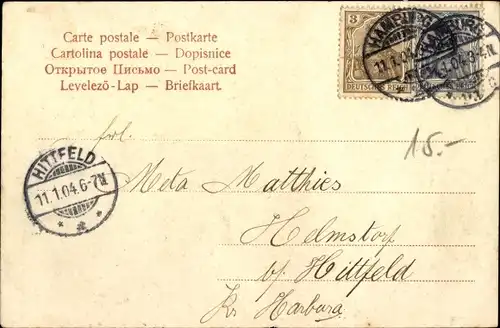 Carte postale — Postkarte
Cartolina postale — Dopisnice
Открытое Письмо — Post-card
Levelező-Lap — Briefkaart.
3
DEUTSCHES REICH
HAMBURG
11.1.04
HAMBURG
1.04.3-4N
15.-
HITTFELD
11.1.04.6-7N
Meta Matthies
Helmstorf
b/ Hittfeld
Kr Harburg